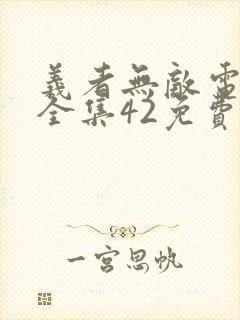 義者無敵電
全集42免費
一宮思帆